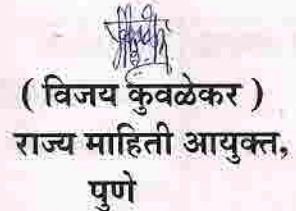 ( विजय कुवळेकर )
राज्य माहिती आयुक्त,
पुणे